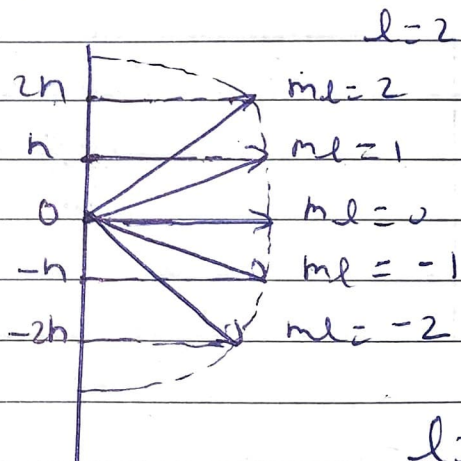 l=2
2ħ ml=2
ħ ml=1
0 ml=0
-ħ ml=-1
-2ħ ml=-2
l=